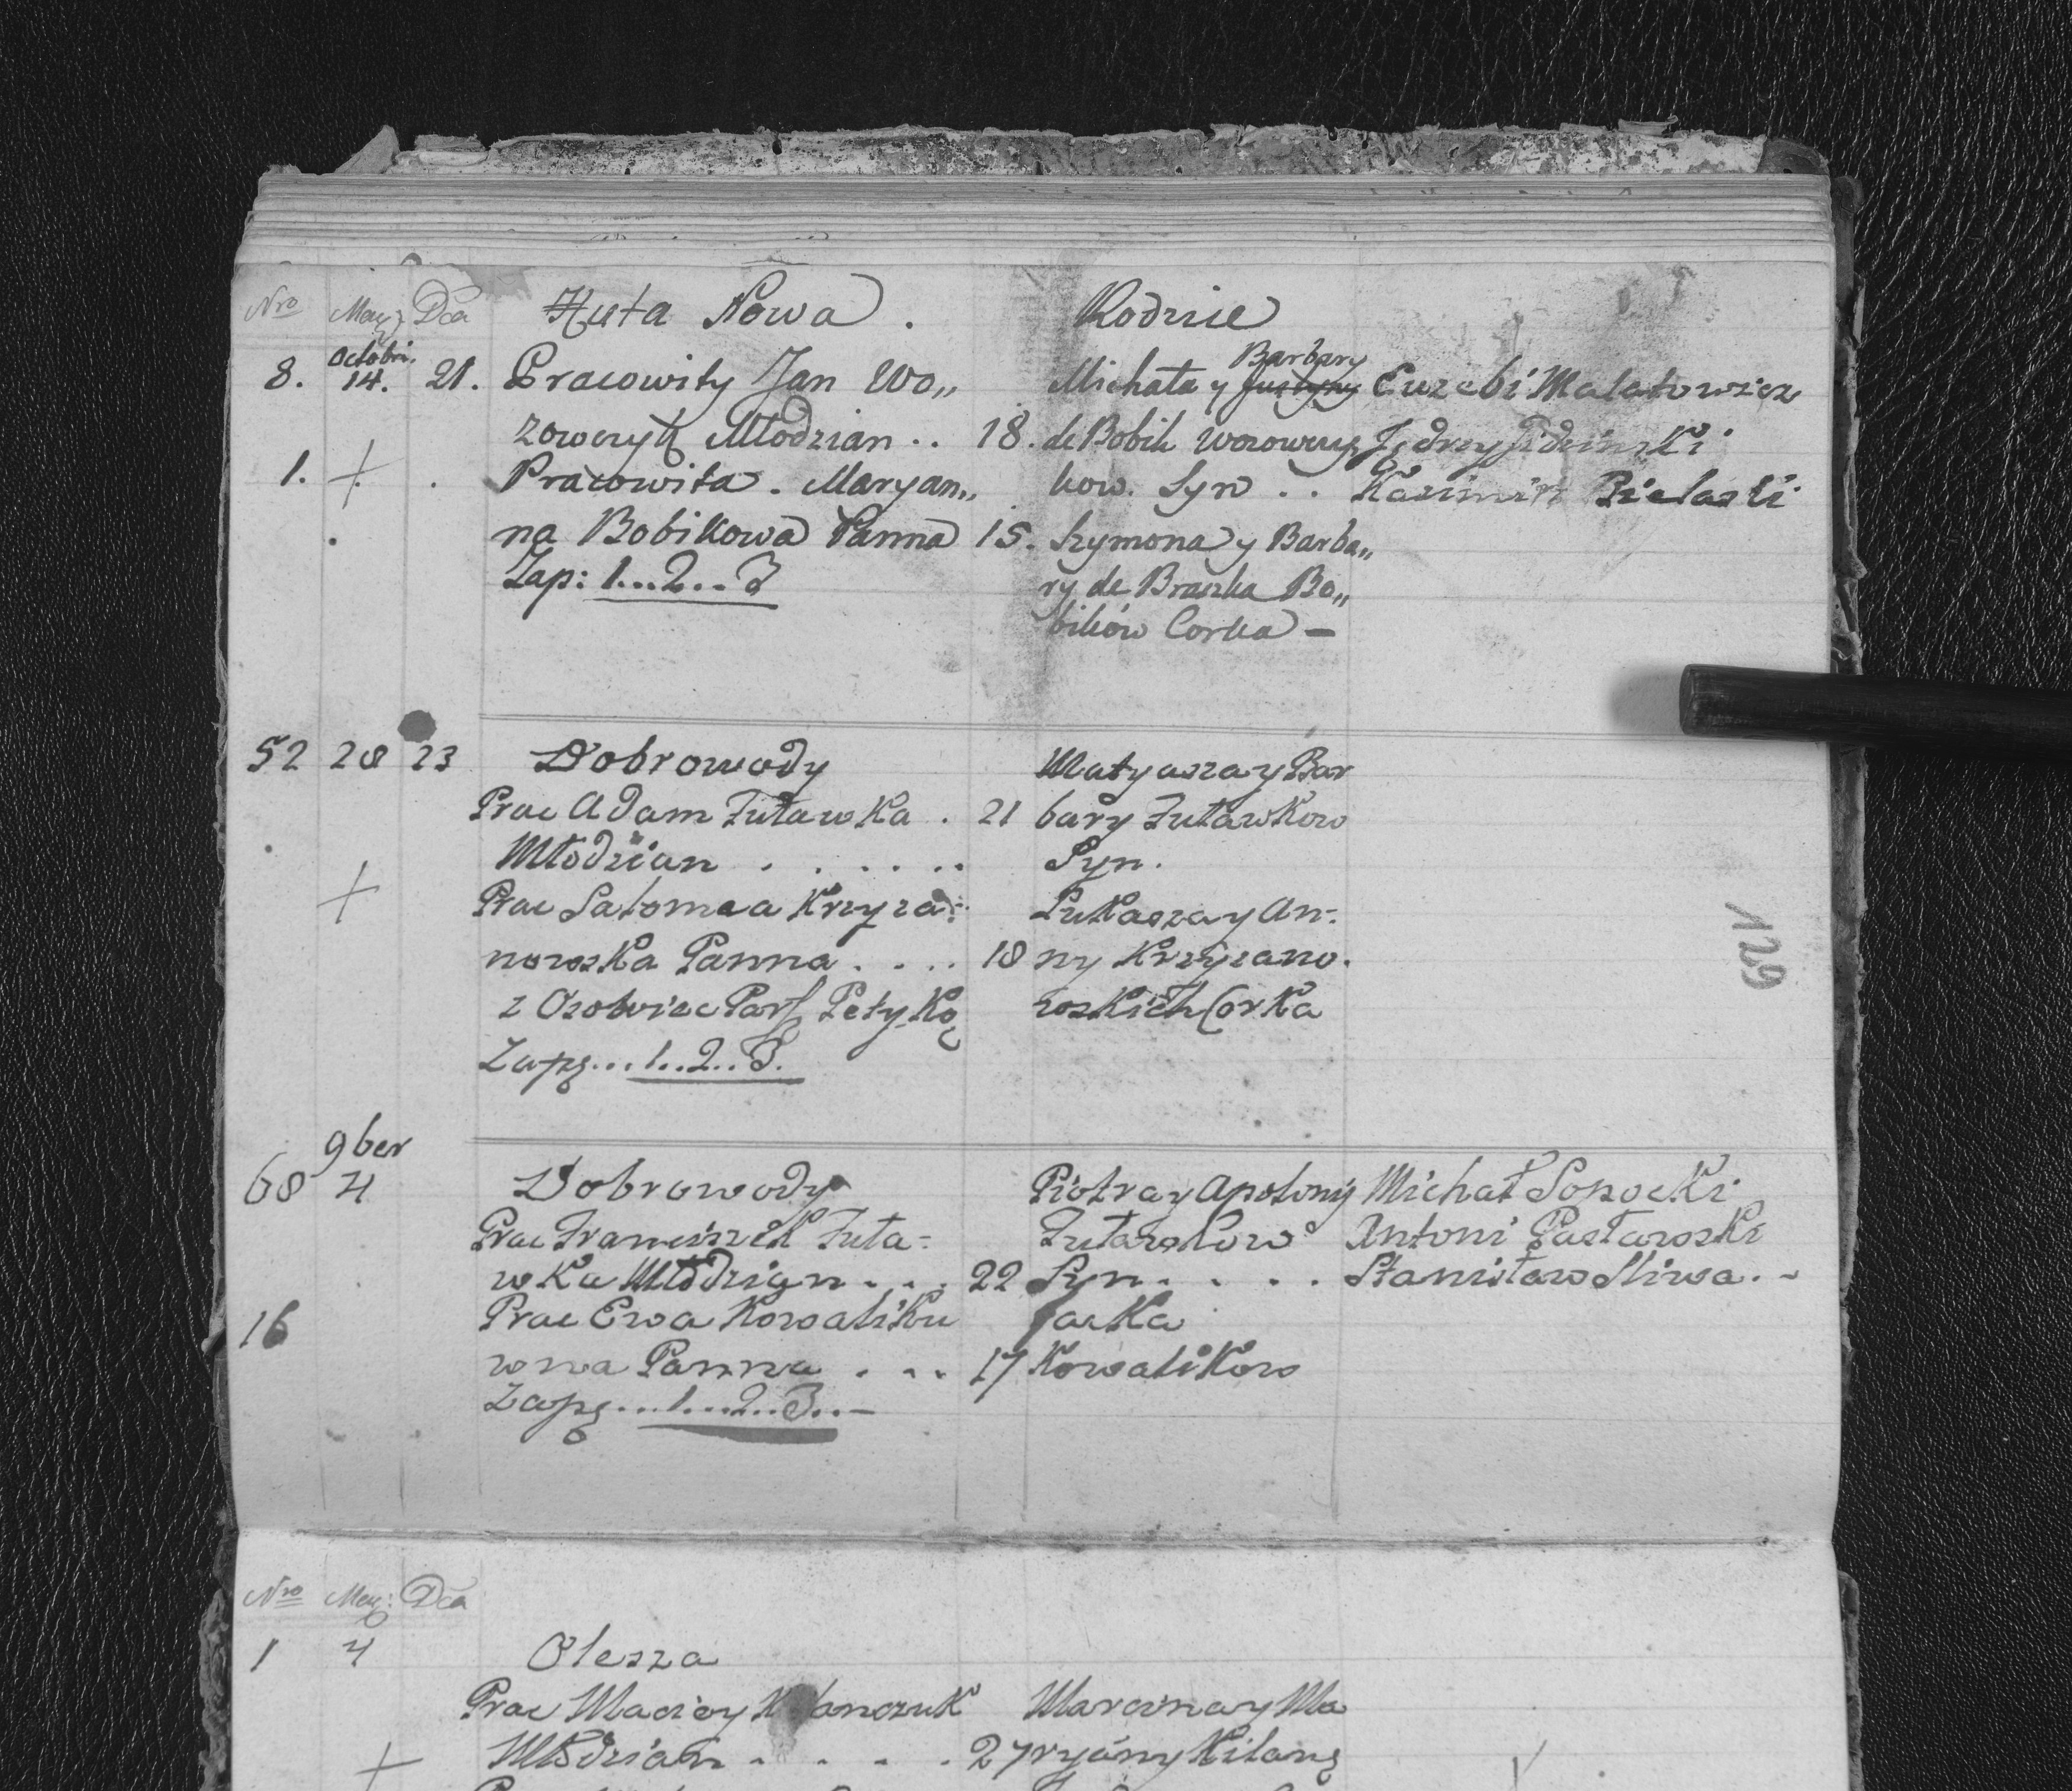 Nro May: Dca Huta Nowa . Rodzice
Octobri. Barbary
8. 14. 21. Pracowity Jan Wo,, Michała y Justyny Euzebi Malatowicz
zowczyk Młodzian .. 18. de Bobik Wozowczy Jędrzy
1. + . Pracowita . Maryan,, kow. Syn . . Kazimirz Bielaski
na Bobikowa Panna 15. Szymona y Barba,,
Zap: 1...2...3 ry de Braszka Bo,,
bików Corka —
52 28 23 Dobrowody Matyasza y Bar
Prac Adam Futawka . 21 bary Futawkow
Młodzian . . . . . . Syn.
+ Prac Salomea Krzyza: Łukasza y An:
nowska Panna . . . . 18 ny Krzyzano.
z Osowiec Par Petyko wskich Corka
Zapg...1..2..3.
9ber
68 4 Dobrowody Piotra y Apolony Michał Sopocki
Prac Franciszek Futa= Futawkow Antoni Pasławski
wka Młodzian . . . 22 Syn . . . . Stanisław Sliwa . -
16 Prac Ewa Kowaliku Jacka
wna Panna . . . 17 Kowalikow
Zapg...1...2..3..—
129
Nro May: Dca
1 4 Olesza
Prac Maciey Marcina y Ma
+ Młodzian . . . . . 27 ryanny